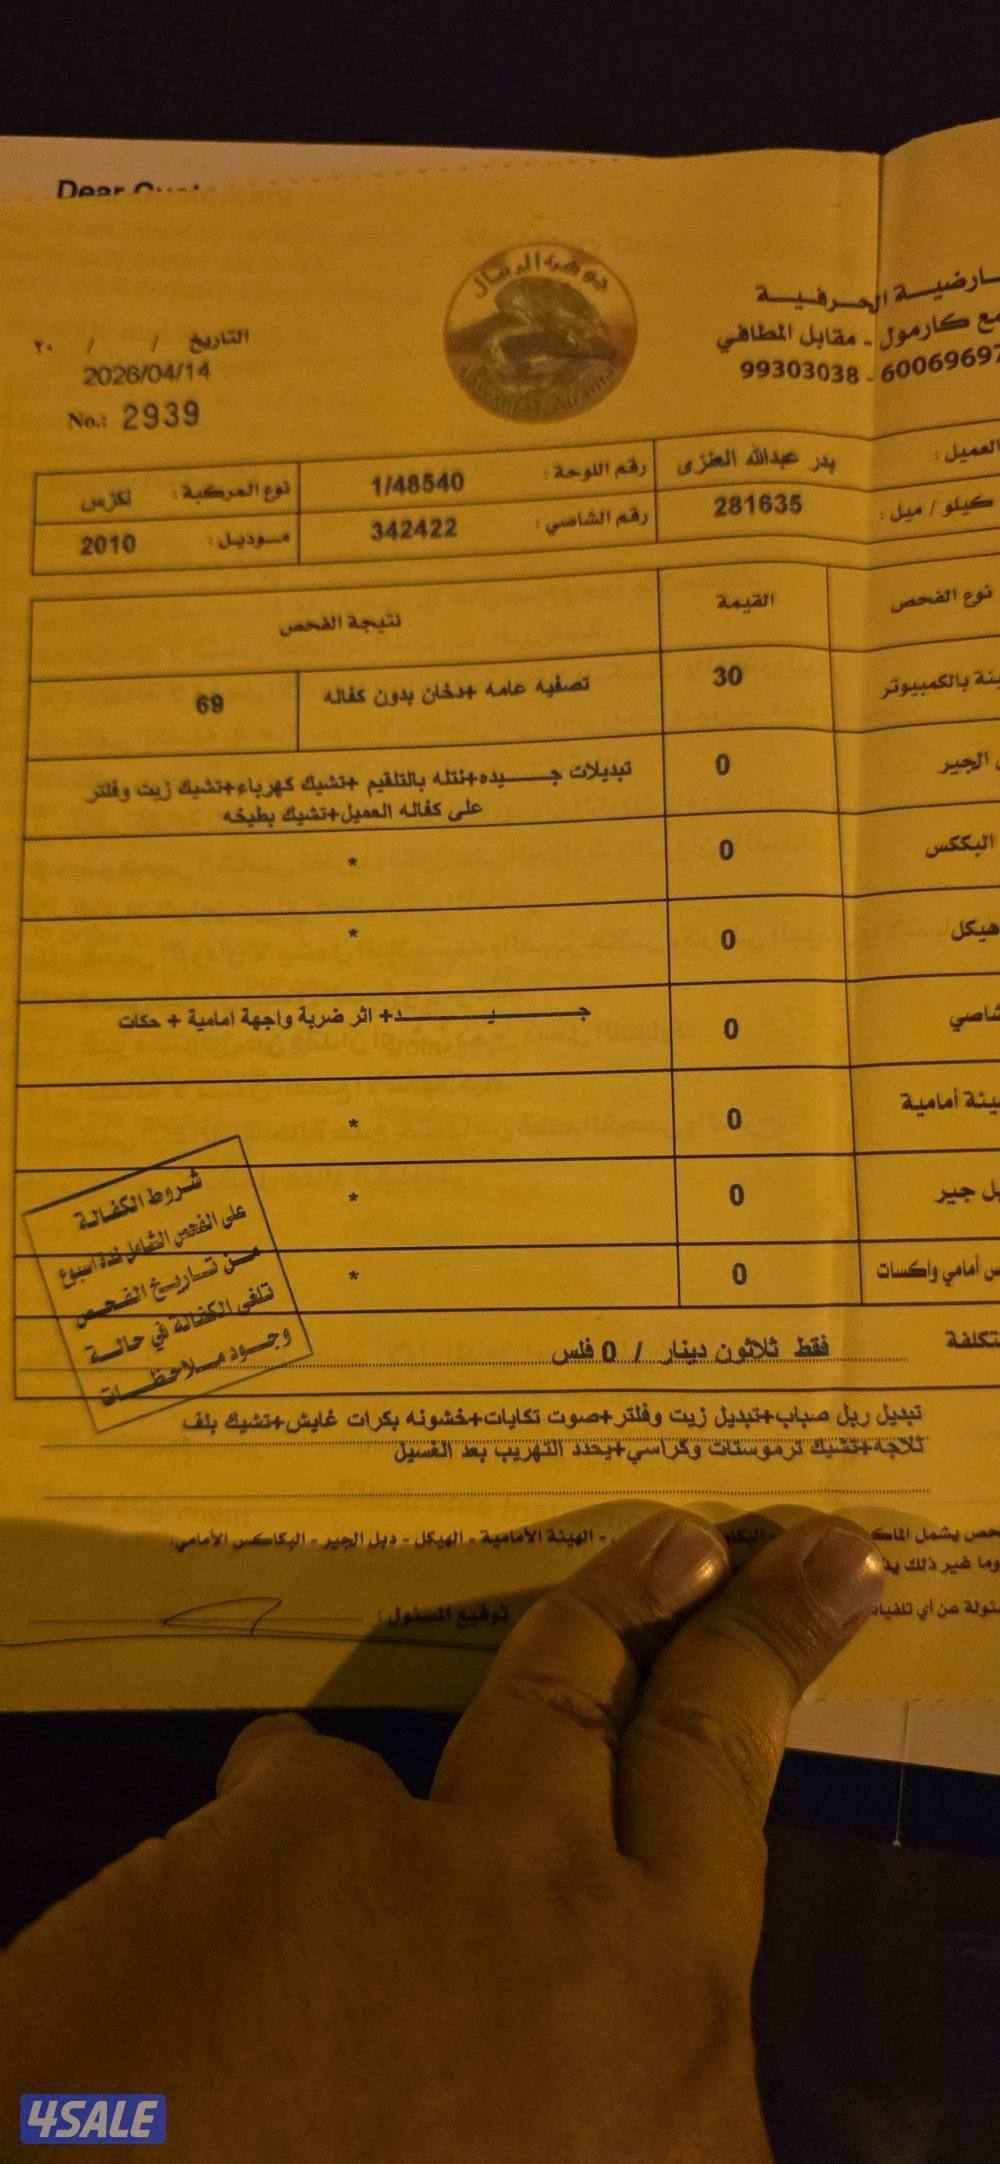 Dear
بوضبة الرمال
الحرفيــة
كارمول - مقابل المطافي
99303038 - 6006969
التاريخ / / ٢٠
2026/04/14
No.: 2939
العميل : بدر عبدالله العنزي
رقم اللوحة : 1/48540
نوع المركبة : لكزس
كيلو / ميل : 281635
رقم الشاصي : 342422
مــوديــل : 2010
نوع الفحص القيمة نتيجة الفحص
بالكمبيوتر 30 تصفيه عامه +دخان بدون كفاله 69
الجير 0 تبديلات جـــــيده+نتله بالتلقيم +تشيك كهرباء+تشيك زيت وفلتر
على كفاله العميل+تشيك بطيخه
البككس 0 *
هيكل 0 *
شاصي 0 جـــــــيـــــــــد+ اثر ضربة واجهة امامية + حكات
أمامية 0 *
جير 0 *
أمامي واكسات 0 *
فقط ثلاثون دينار / 0 فلس
شروط الكفالة
على الفحص الشامل لمدة اسبوع
مـن تـاريـخ الفحـص
تلغى الكفالة في حالـة
وجـود مـلاحظـــات
تبديل ربل صباب+تبديل زيت وفلتر+صوت تكايات+خشونه بكرات غايش+تشيك بلف
ثلاجه+تشيك ترموستات وكراسي+يحدد التهريب بعد الغسيل
يشمل - الهيئة الأمامية - الهيكل - دبل الجير - البكاكس الأمامي،
وما غير ذلك
عن أي توقيع المسئول :
4SALE